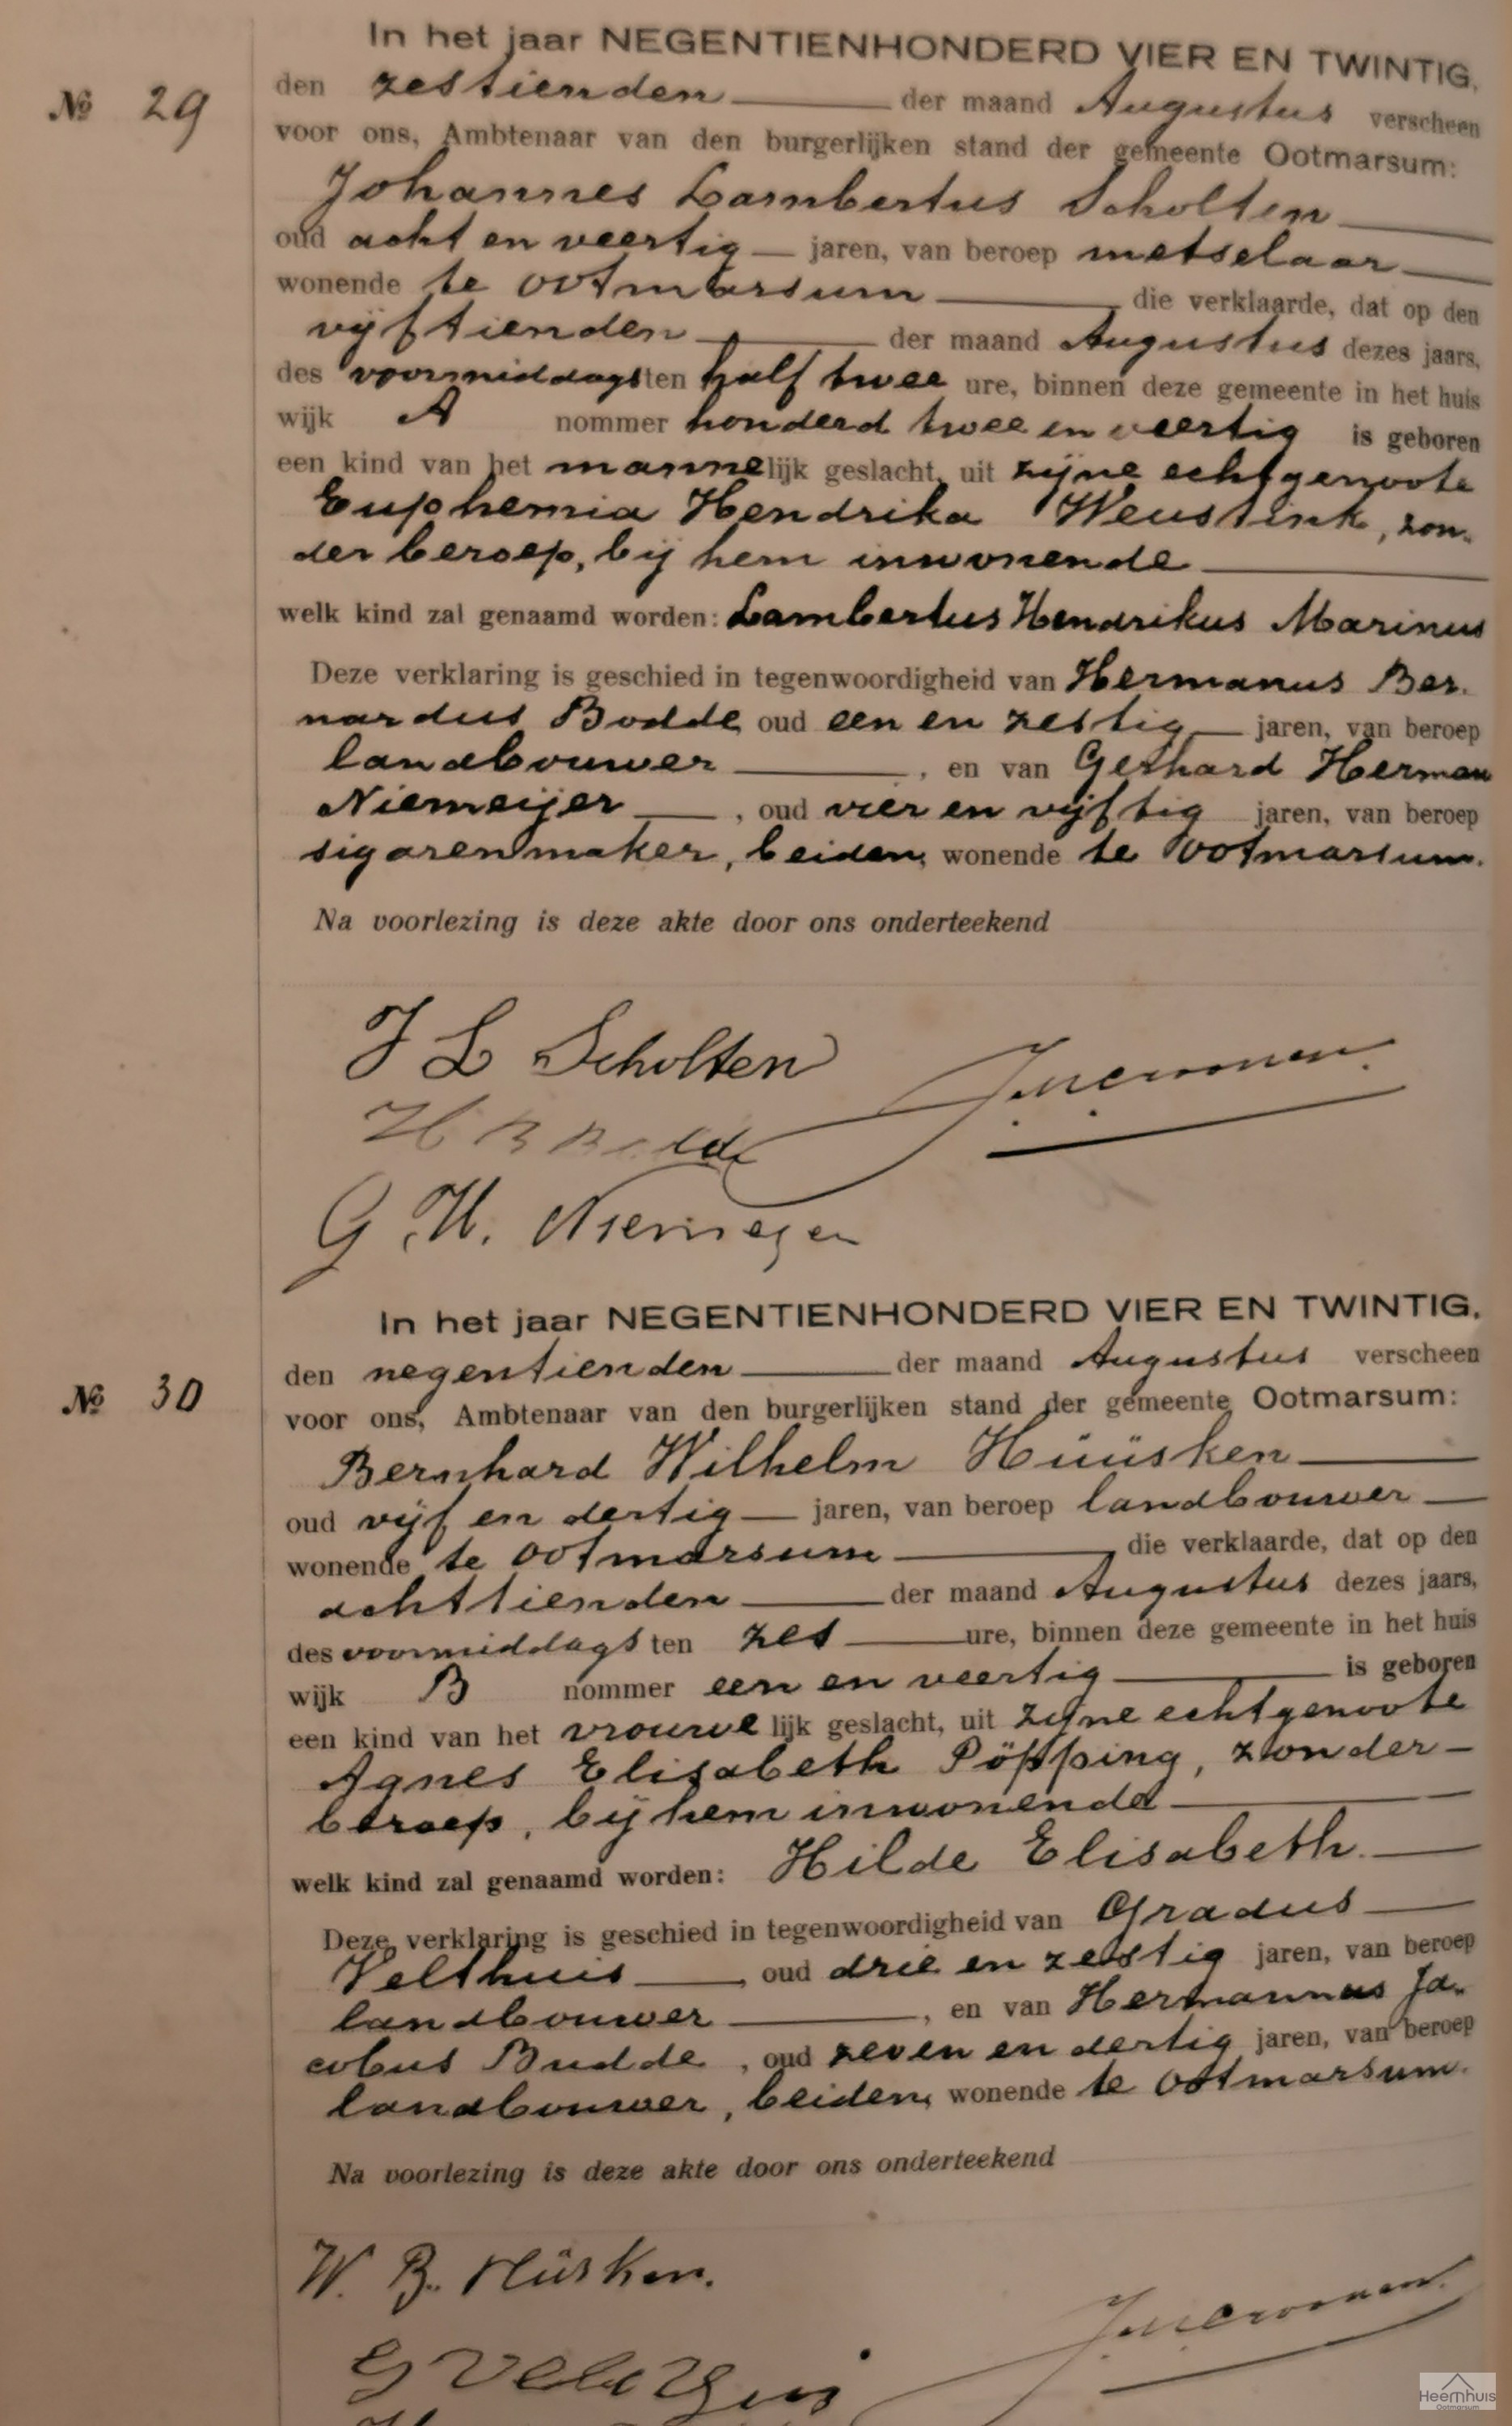 In het jaar NEGENTIENHONDERD VIER EN TWINTIG,
№ 29
den zestienden der maand Augustus verscheen
voor ons, Ambtenaar van den burgerlijken stand der gemeente Ootmarsum:
Johannes Lambertus Scholten
oud acht en veertig jaren, van beroep metselaar
wonende te Ootmarsum die verklaarde, dat op den
vijftienden der maand Augustus dezes jaars,
des voormiddags ten half twee ure, binnen deze gemeente in het huis
wijk A nommer honderd twee en veertig is geboren
een kind van het mannelijk geslacht, uit zijne echtgenoote
Euphemia Hendrika Weustink, zon-
der beroep, bij hem inwonende
welk kind zal genaamd worden: Lambertus Hendrikus Marinus
Deze verklaring is geschied in tegenwoordigheid van Hermanus Ber-
nardus Bodde, oud een en zestig jaren, van beroep
landbouwer, en van Gerhard Herman
Niemeijer, oud vier en vijftig jaren, van beroep
sigarenmaker, beiden, wonende te Ootmarsum.
Na voorlezing is deze akte door ons onderteekend
J L Scholten
H B Bodde
G. H. Niemeyer
In het jaar NEGENTIENHONDERD VIER EN TWINTIG,
№ 30
den negentienden der maand Augustus verscheen
voor ons, Ambtenaar van den burgerlijken stand der gemeente Ootmarsum:
Bernhard Wilhelm Hüüsken
oud vijf en dertig jaren, van beroep landbouwer
wonende te Ootmarsum die verklaarde, dat op den
achttienden der maand Augustus dezes jaars,
des voormiddags ten zes ure, binnen deze gemeente in het huis
wijk B nommer een en veertig is geboren
een kind van het vrouwelijk geslacht, uit zijne echtgenoote
Agnes Elisabeth Pöpping, zonder-
beroep, bij hem inwonende
welk kind zal genaamd worden: Hilde Elisabeth.
Deze verklaring is geschied in tegenwoordigheid van Gradus
Velthuis, oud drie en zestig jaren, van beroep
landbouwer, en van Hermannus Ja-
cobus Budde, oud zeven en dertig jaren, van beroep
landbouwer, beiden, wonende te Ootmarsum.
Na voorlezing is deze akte door ons onderteekend
W. B. Hüsken.
G Velthuis
Heemhuis
Ootmarsum